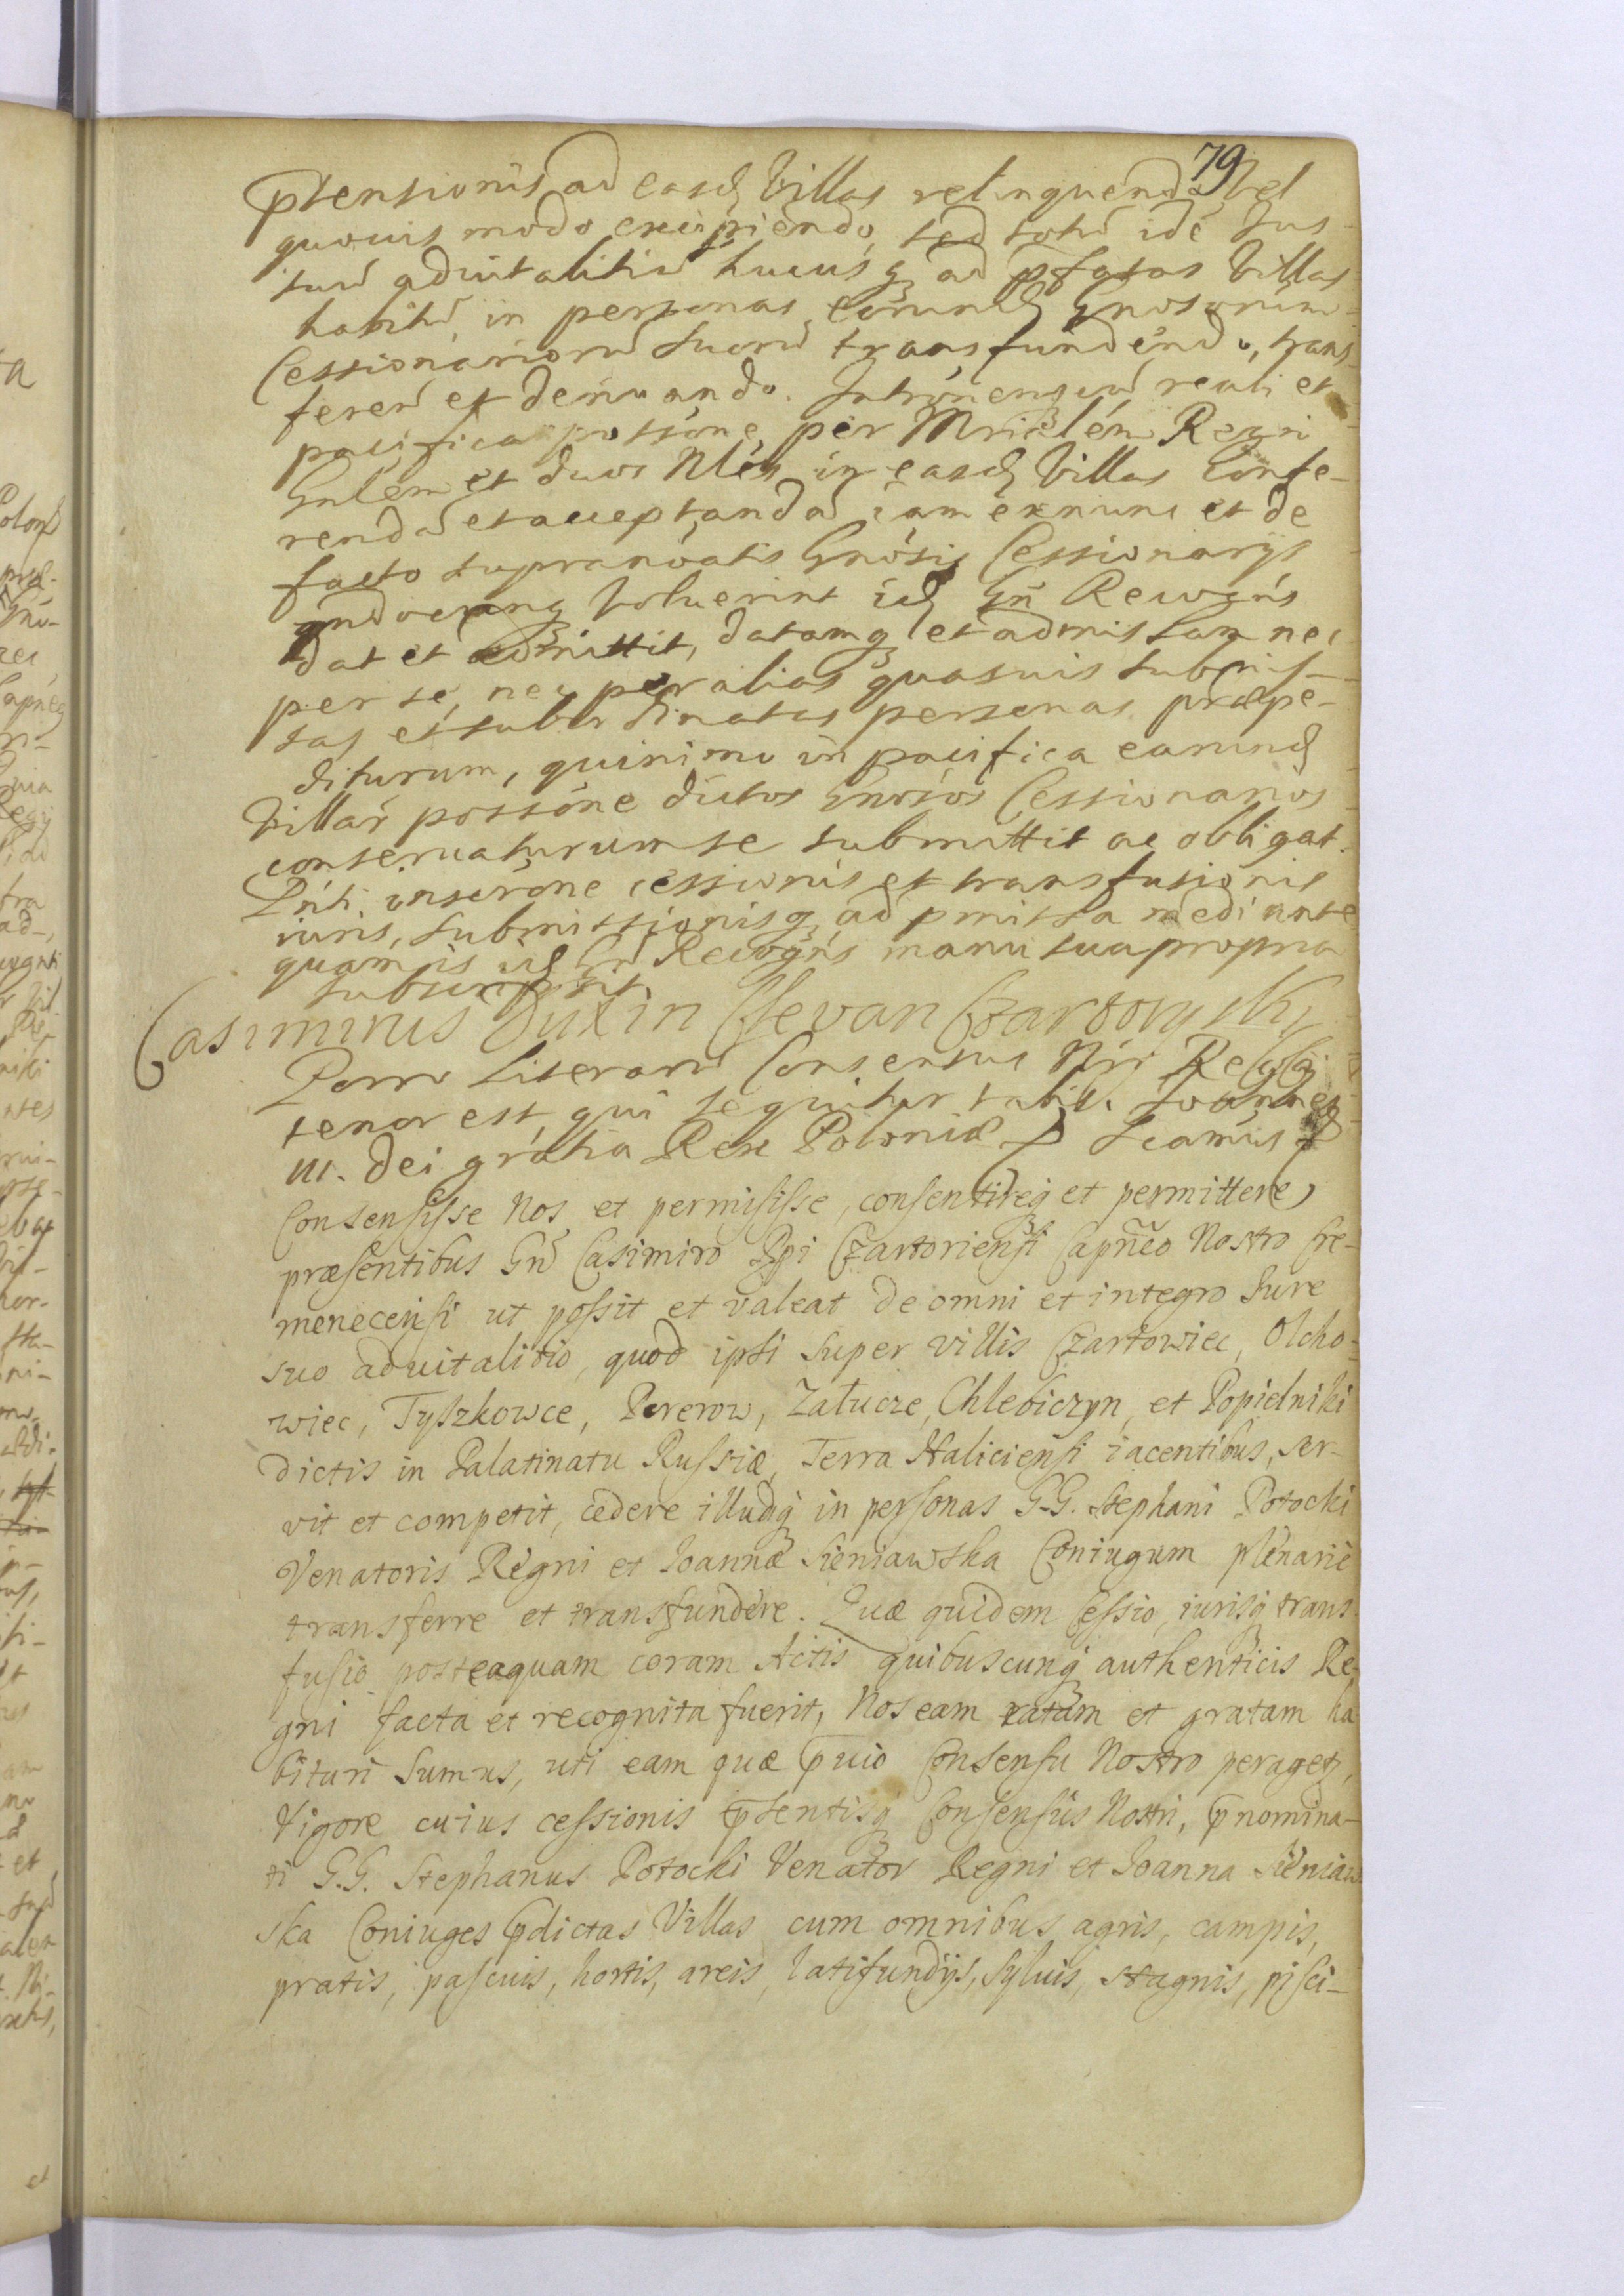 79
ptensionis ad easd Villas relinquendo Vel
quovis modo excipiendo, sed totũ idẽ Jus
suũ aduitalitiũ hucusq ad pfatas Villas
habitũ, in personas eorund Gnosorum
Cessionariorũ suorũ transfundendo, trans
ferenđ et deriuando. Intromensiũ reali et
pacifica possione per Mrialem Regni
Gnlem et duos Nles in easd Villas Confe-
rendã et acceptandã iam exnunc et de
facto supranoatis Gnosis Cessionarijs
qndocunq Voluerint id Gñ Recogñs
dat et admittit, datamq et admissam nec
per se, nec per alias quasuis submis-
sas et subordinatas personas præpe-
diturum, quinimo in pacifica earund
Villar possõne dictos Gnosos Cessionarios
conseruaturum se submittit ac obligat.
Pnti inscrõne cessionis et transfusionis
iuris, submissionisq ad pmissa mediante
quam is id Gñ Recogñs manu sua propria
subscripsit.
Casimirus Dux in Clevan Czartoryski
Porro Literarũ Consensus Nri Regij
tenor est, qui sequitur talis. Joannes
III. Dei grãtia Rex Poloniæ Scamus
Consensisse Nos et permisisse, consentireq et permittere,
præsentibus Gñ Casimiro Dpi Czartoriensi Capñeo Nostro Cre-
menecensi ut possit et valeat de omni et integro Jure
suo aduitalitio, quod ipsi super villis Czartowiec, Olcho-
wiec, Tyszkowce, Pererow, Załucze, Chlebiczyn, et Popielniki
dictis in Palatinatu Russiæ, Terra Haliciensi iacentibus, ser-
vit et competit, cedere illudq in personas G.G. Stephani Potocki
Venatoris Regni et Joannæ Sieniawska Coniugum plenarie
transferre et transfundere. Quæ quidem Cessio, iurisq trans
fusio posteaquam coram Actis quibuscunq authenticis Re-
gni facta et recognita fuerit, Nos eam ratam et gratam ha
bituri sumus, uti eam quæ pvio Consensu Nostro peraget,
Vigore cuius cessionis psentisq Consensus Nostri, pnomina-
ti G.G. Stephanus Potocki Venator Regni et Joanna Sieniaw
ska Coniuges pdictas Villas cum omnibus agris, campis,
pratis, pascuis, hortis, areis, latifundijs, syluis, stagnis, pisci-